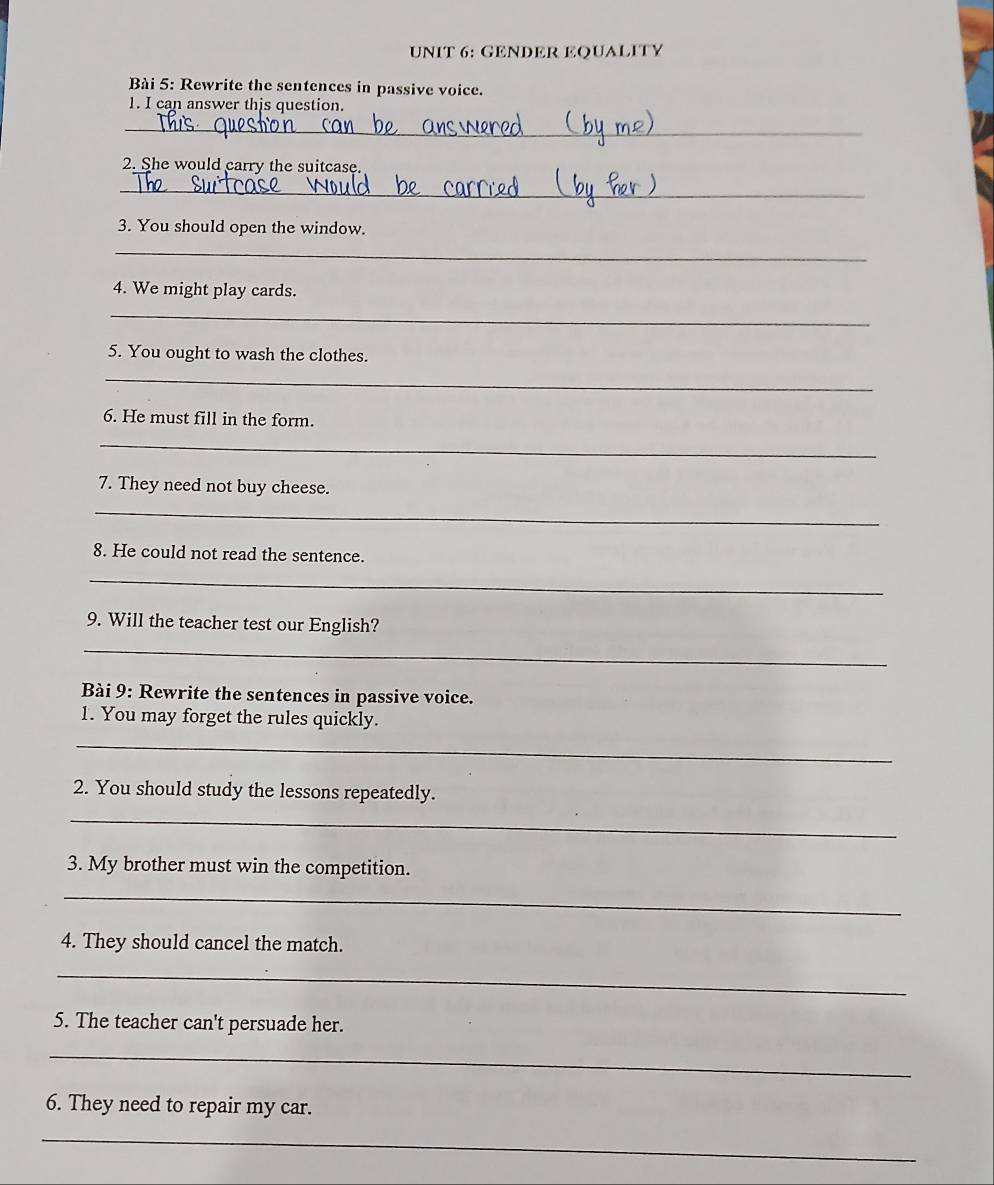 UNIT 6: GENDER EQUALITY
Bài 5: Rewrite the sentences in passive voice.
1. I can answer this question.
This question can be answered (by me)
2. She would carry the suitcase.
The suitcase would be carried (by her)
3. You should open the window.
4. We might play cards.
5. You ought to wash the clothes.
6. He must fill in the form.
7. They need not buy cheese.
8. He could not read the sentence.
9. Will the teacher test our English?
Bài 9: Rewrite the sentences in passive voice.
1. You may forget the rules quickly.
2. You should study the lessons repeatedly.
3. My brother must win the competition.
4. They should cancel the match.
5. The teacher can't persuade her.
6. They need to repair my car.